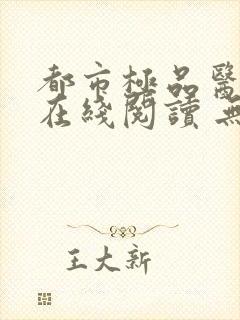 都市极品醫
在綫閱讀 無
王大新